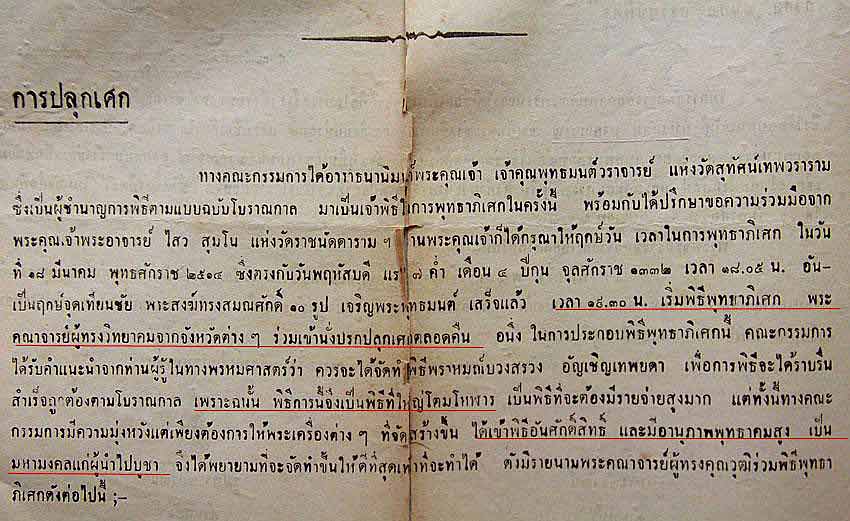 การปลุกเศก
ทางคณะกรรมการได้อาราธนานิมนต์พระคุณเจ้า เจ้าคุณพุทธมนต์วราจารย์ แห่งวัดสุทัศน์เทพวราราม
ซึ่งเป็นผู้ชำนาญการพิธีตามแบบฉบับโบราณกาล มาเป็นเจ้าพิธีในการพุทธาภิเศกในครั้งนี้ พร้อมกับได้ปรึกษาขอความร่วมมือจาก
พระคุณเจ้าพระอาจารย์ ไสว สุมโน แห่งวัดราชนัดดาราม ฯ ท่านพระคุณเจ้าก็ได้กรุณาให้ฤกษ์วัน เวลาในการพุทธาภิเศก ในวัน
ที่ ๑๘ มีนาคม พุทธศักราช ๒๕๑๔ ซึ่งตรงกับวันพฤหัสบดี แรม ๗ ค่ำ เดือน ๔ ปีกุน จุลศักราช ๑๓๓๒ เวลา ๑๘.๐๕ น. อัน-
เป็นฤกษ์จุดเทียนชัย พระสงฆ์ทรงสมณศักดิ์ ๑๐ รูป เจริญพระพุทธมนต์ เสร็จแล้ว เวลา ๑๙.๓๐ น. เริ่มพิธีพุทธาภิเศก พระ
คณาจารย์ผู้ทรงวิทยาคมจากจังหวัดต่าง ๆ ร่วมเข้านั่งปรกปลุกเศกตลอดคืน อนึ่ง ในการประกอบพิธีพุทธาภิเศกนี้ คณะกรรมการ
ได้รับคำแนะนำจากท่านผู้รู้ในทางพรหมศาสตร์ว่า ควรจะได้จัดทำพิธีพราหมณ์บวงสรวง อัญเชิญเทพยดา เพื่อการพิธีจะได้ราบรื่น
สำเร็จถูกต้องตามโบราณกาล เพราะฉนั้น พิธีการนี้จึงเป็นพิธีที่ใหญ่โตมโหฬาร เป็นพิธีที่จะต้องมีรายจ่ายสูงมาก แต่ทั้งนี้ทางคณะ
กรรมการมีความมุ่งหวังแต่เพียงต้องการให้พระเครื่องต่าง ๆ ที่จัดสร้างขึ้น ได้เข้าพิธีอันศักดิ์สิทธิ์ และมีอานุภาพพุทธาคมสูง เป็น
มหามงคลแก่ผู้นำไปบูชา จึงได้พยายามที่จะจัดทำขึ้นให้ดีที่สุดเท่าที่จะทำได้ ดังมีรายนามพระคณาจารย์ผู้ทรงคุณวุฒิร่วมพิธีพุทธา
ภิเศกดังต่อไปนี้ ;-